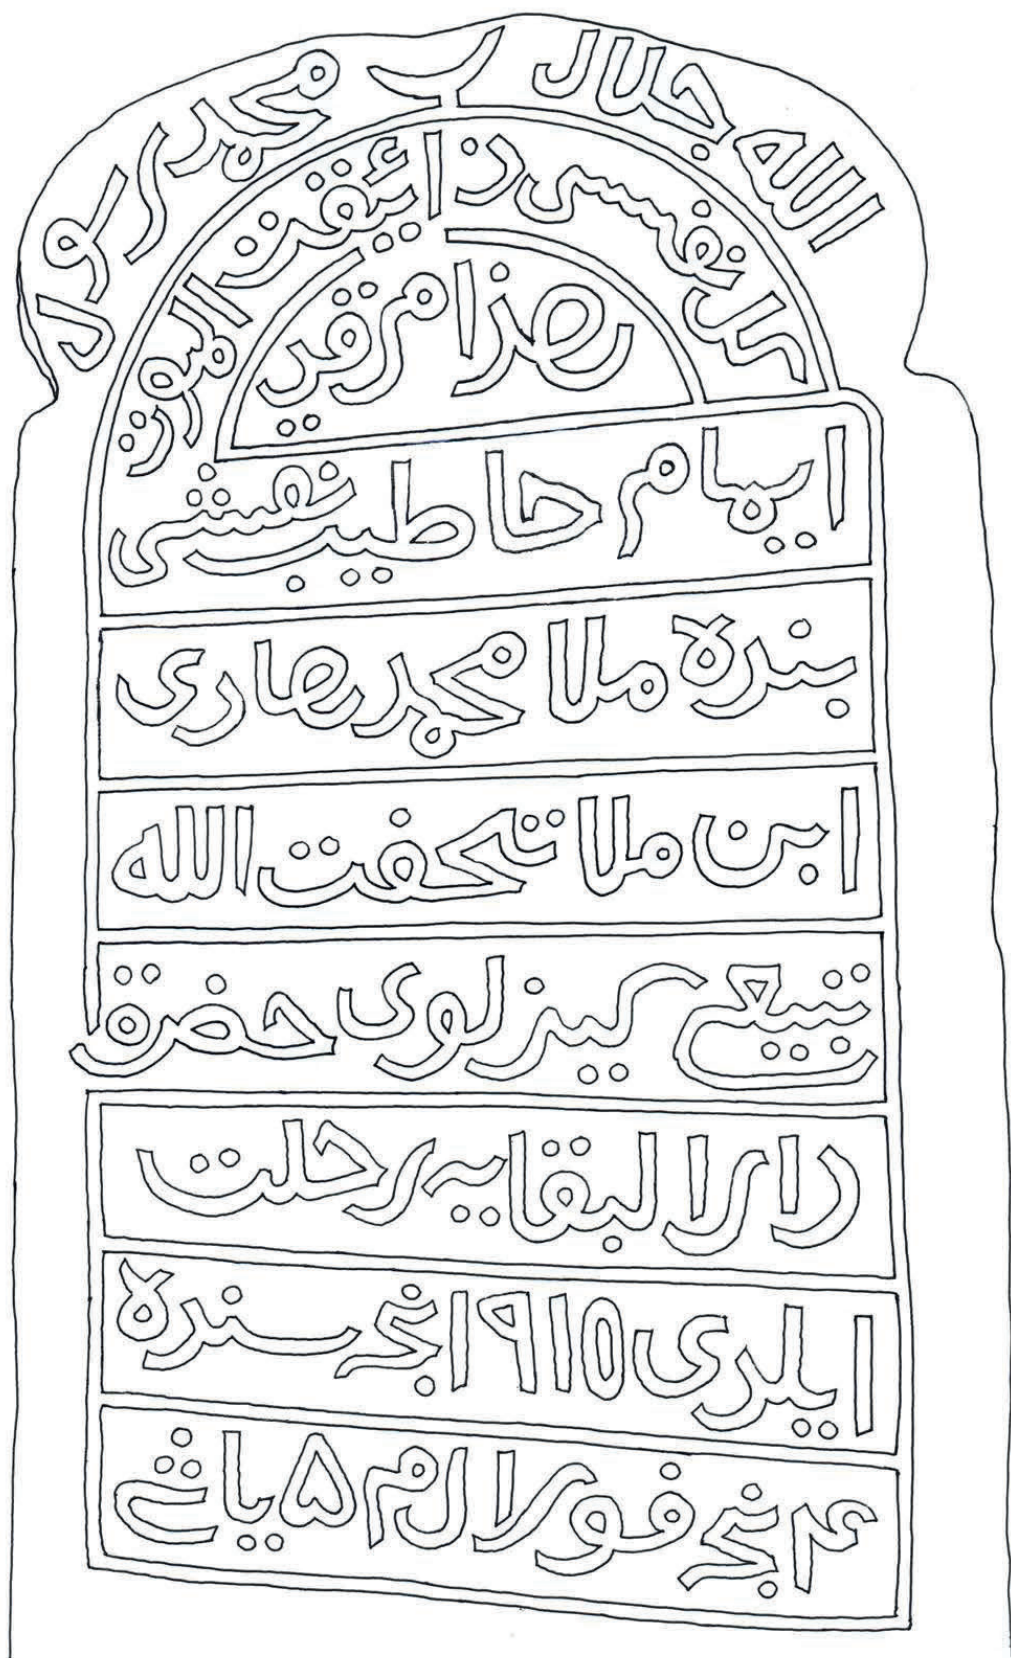 الله جلال محمد رسول
كل نفسى ذائقت الموت
هزا مرقد
ايمام حاطيب نقشى
بنده ملا محمد هارى
ابن ملا تحفت الله
كيزلوى حضرة
دار لا لبقايه رحلت
ايلدى ١٩١٥ نجى سنده
۴ نجى فورلام ۵ ياشى